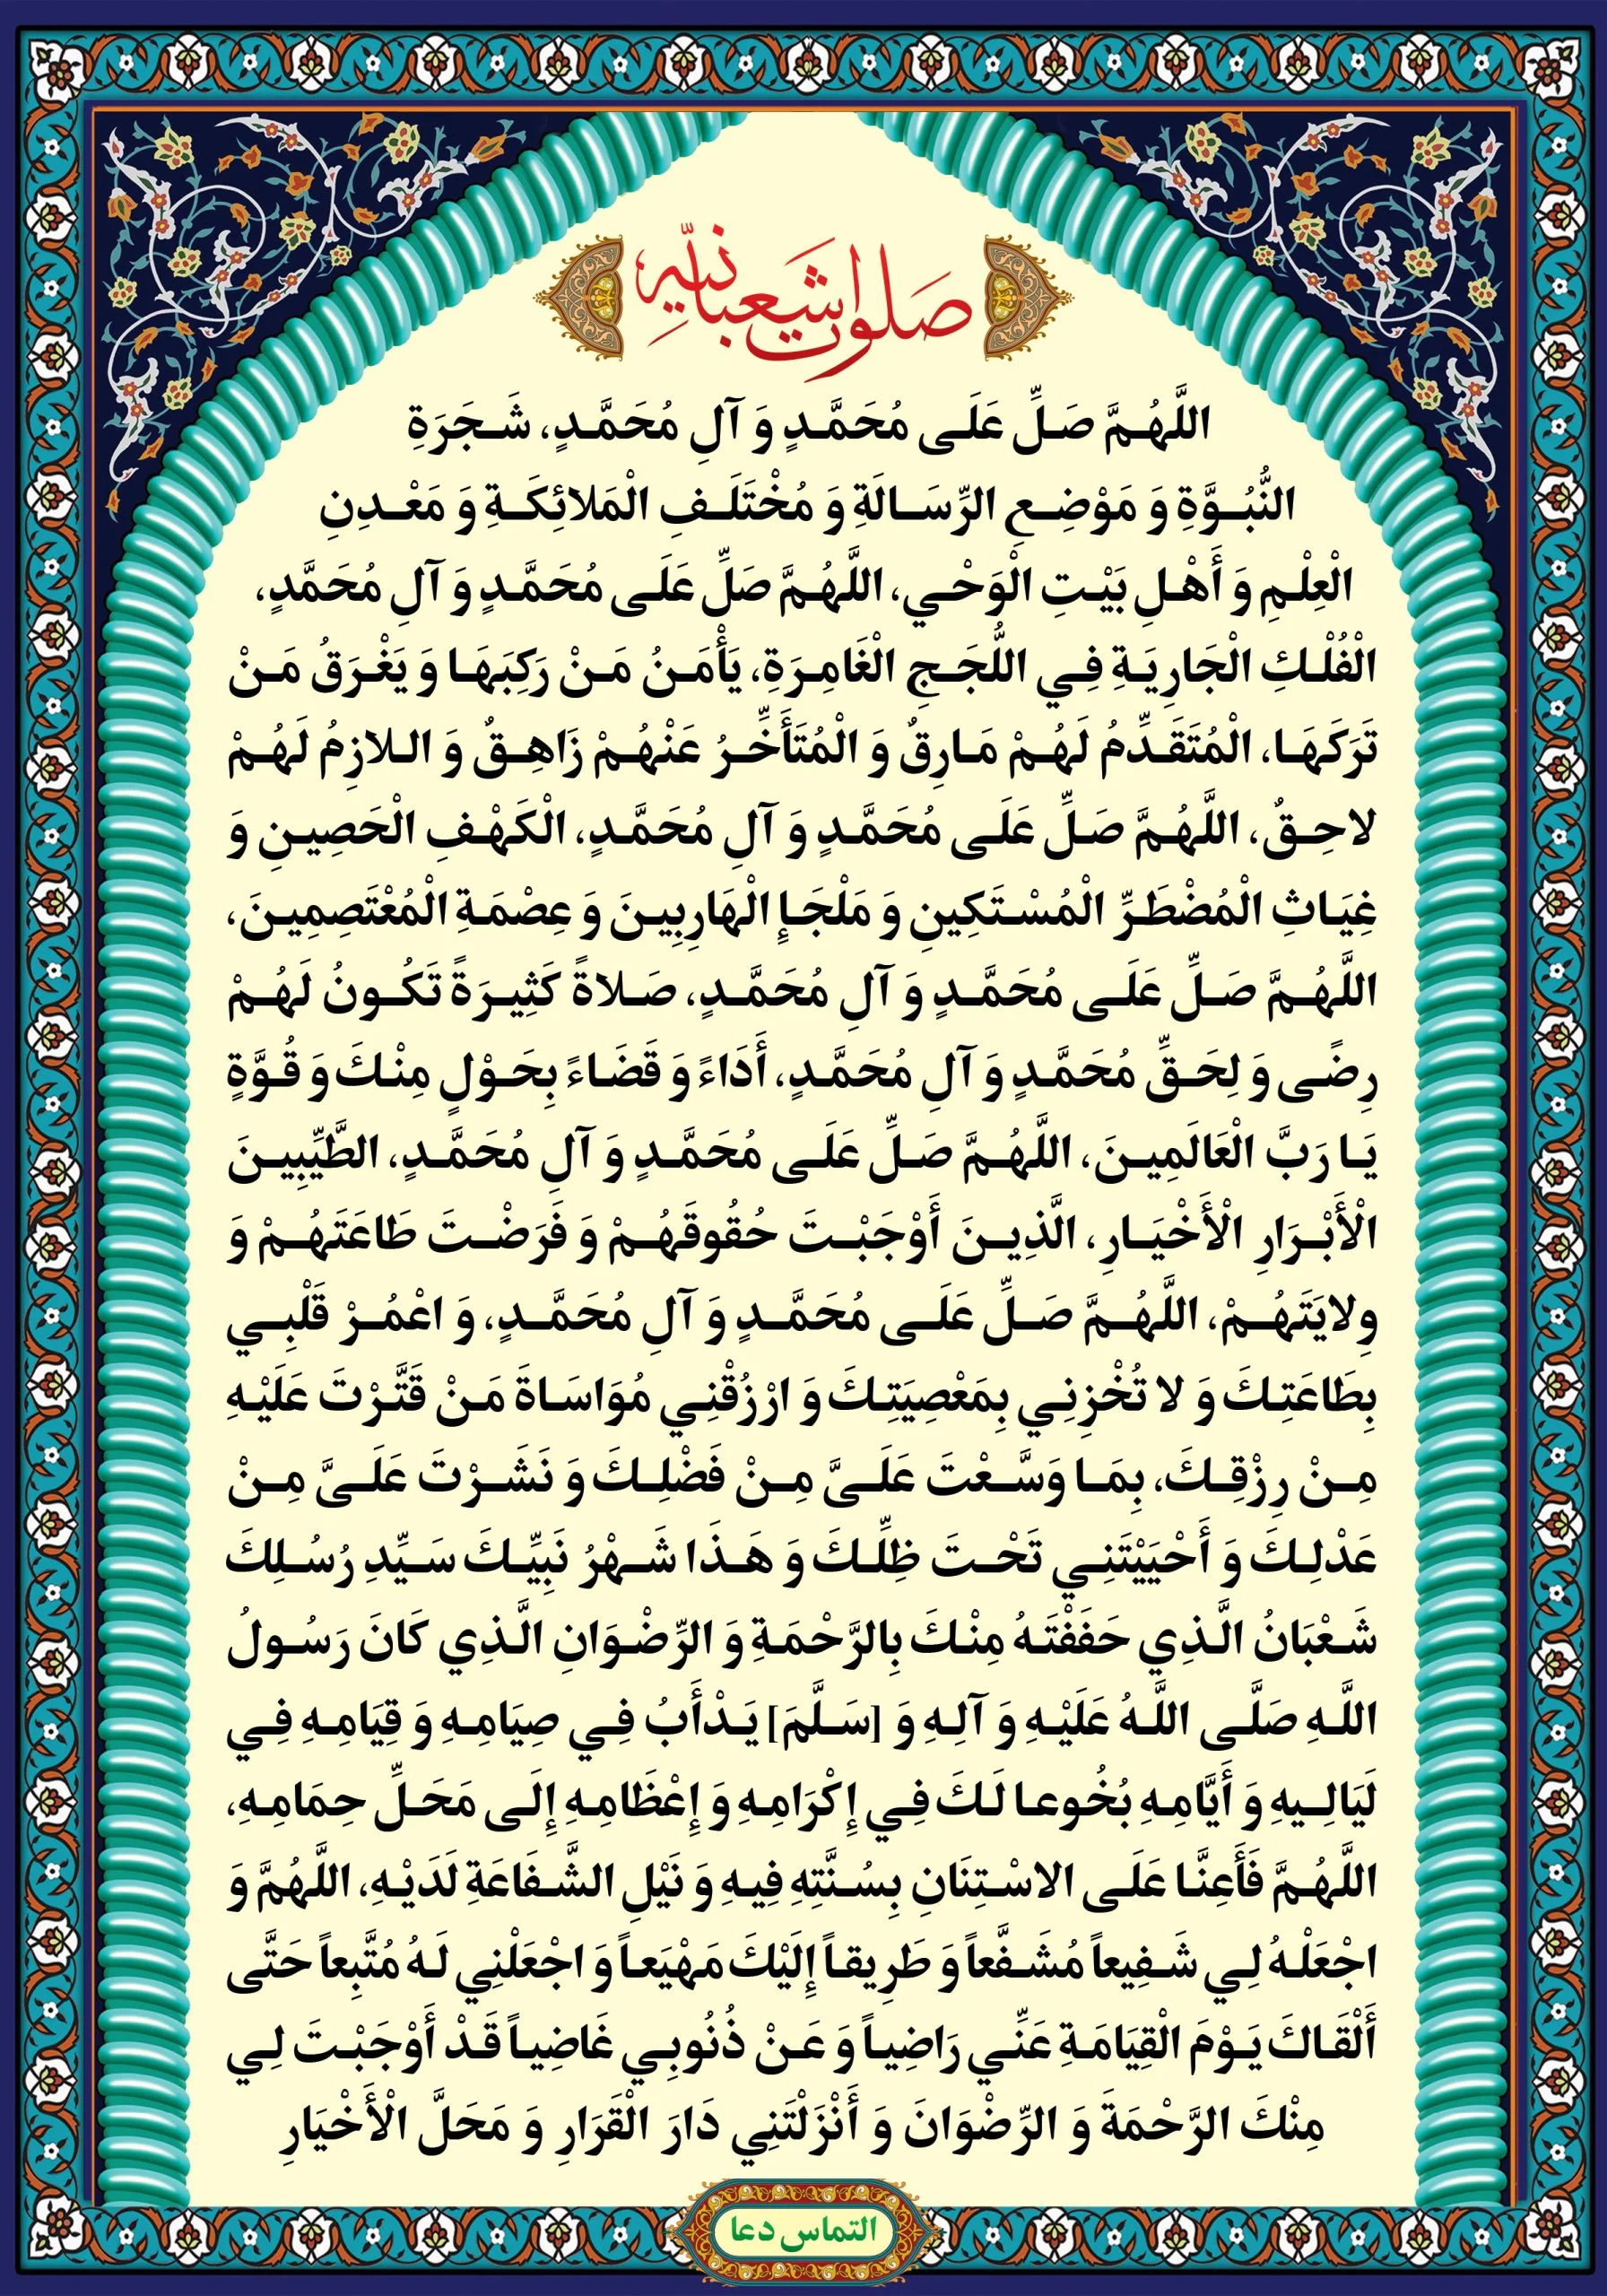 صلوات شعبانیه
اللَّهُمَّ صَلِّ عَلَى مُحَمَّدٍ وَ آلِ مُحَمَّدٍ، شَجَرَةِ
النُّبُوَّةِ وَ مَوْضِعِ الرِّسَالَةِ وَ مُخْتَلَفِ الْمَلائِكَةِ وَ مَعْدِنِ
الْعِلْمِ وَ أَهْلِ بَيْتِ الْوَحْيِ، اللَّهُمَّ صَلِّ عَلَى مُحَمَّدٍ وَ آلِ مُحَمَّدٍ،
الْفُلْكِ الْجَارِيَةِ فِي اللُّجَجِ الْغَامِرَةِ، يَأْمَنُ مَنْ رَكِبَهَا وَ يَغْرَقُ مَنْ
تَرَكَهَا، الْمُتَقَدِّمُ لَهُمْ مَارِقٌ وَ الْمُتَأَخِّرُ عَنْهُمْ زَاهِقٌ وَ اللازِمُ لَهُمْ
لاحِقٌ، اللَّهُمَّ صَلِّ عَلَى مُحَمَّدٍ وَ آلِ مُحَمَّدٍ، الْكَهْفِ الْحَصِينِ وَ
غِيَاثِ الْمُضْطَرِّ الْمُسْتَكِينِ وَ مَلْجَإِ الْهَارِبِينَ وَ عِصْمَةِ الْمُعْتَصِمِينَ،
اللَّهُمَّ صَلِّ عَلَى مُحَمَّدٍ وَ آلِ مُحَمَّدٍ، صَلاةً كَثِيرَةً تَكُونُ لَهُمْ
رِضًى وَ لِحَقِّ مُحَمَّدٍ وَ آلِ مُحَمَّدٍ، أَدَاءً وَ قَضَاءً بِحَوْلٍ مِنْكَ وَ قُوَّةٍ
يَا رَبَّ الْعَالَمِينَ، اللَّهُمَّ صَلِّ عَلَى مُحَمَّدٍ وَ آلِ مُحَمَّدٍ، الطَّيِّبِينَ
الْأَبْرَارِ الْأَخْيَارِ، الَّذِينَ أَوْجَبْتَ حُقُوقَهُمْ وَ فَرَضْتَ طَاعَتَهُمْ وَ
وِلايَتَهُمْ، اللَّهُمَّ صَلِّ عَلَى مُحَمَّدٍ وَ آلِ مُحَمَّدٍ، وَ اعْمُرْ قَلْبِي
بِطَاعَتِكَ وَ لا تُخْزِنِي بِمَعْصِيَتِكَ وَ ارْزُقْنِي مُوَاسَاةَ مَنْ قَتَّرْتَ عَلَيْهِ
مِنْ رِزْقِكَ، بِمَا وَسَّعْتَ عَلَىَّ مِنْ فَضْلِكَ وَ نَشَرْتَ عَلَىَّ مِنْ
عَدْلِكَ وَ أَحْيَيْتَنِي تَحْتَ ظِلِّكَ وَ هَذَا شَهْرُ نَبِيِّكَ سَيِّدِ رُسُلِكَ
شَعْبَانُ الَّذِي حَفَفْتَهُ مِنْكَ بِالرَّحْمَةِ وَ الرِّضْوَانِ الَّذِي كَانَ رَسُولُ
اللَّهِ صَلَّى اللَّهُ عَلَيْهِ وَ آلِهِ وَ [سَلَّمَ] يَدْأَبُ فِي صِيَامِهِ وَ قِيَامِهِ فِي
لَيَالِيهِ وَ أَيَّامِهِ بُخُوعا لَكَ فِي إِكْرَامِهِ وَ إِعْظَامِهِ إِلَى مَحَلِّ حِمَامِهِ،
اللَّهُمَّ فَأَعِنَّا عَلَى الاسْتِنَانِ بِسُنَّتِهِ فِيهِ وَ نَيْلِ الشَّفَاعَةِ لَدَيْهِ، اللَّهُمَّ وَ
اجْعَلْهُ لِي شَفِيعاً مُشَفَّعاً وَ طَرِيقاً إِلَيْكَ مَهْيَعاً وَ اجْعَلْنِي لَهُ مُتَّبِعاً حَتَّى
أَلْقَاكَ يَوْمَ الْقِيَامَةِ عَنِّي رَاضِياً وَ عَنْ ذُنُوبِي غَاضِياً قَدْ أَوْجَبْتَ لِي
مِنْكَ الرَّحْمَةَ وَ الرِّضْوَانَ وَ أَنْزَلْتَنِي دَارَ الْقَرَارِ وَ مَحَلَّ الْأَخْيَارِ
التماس دعا